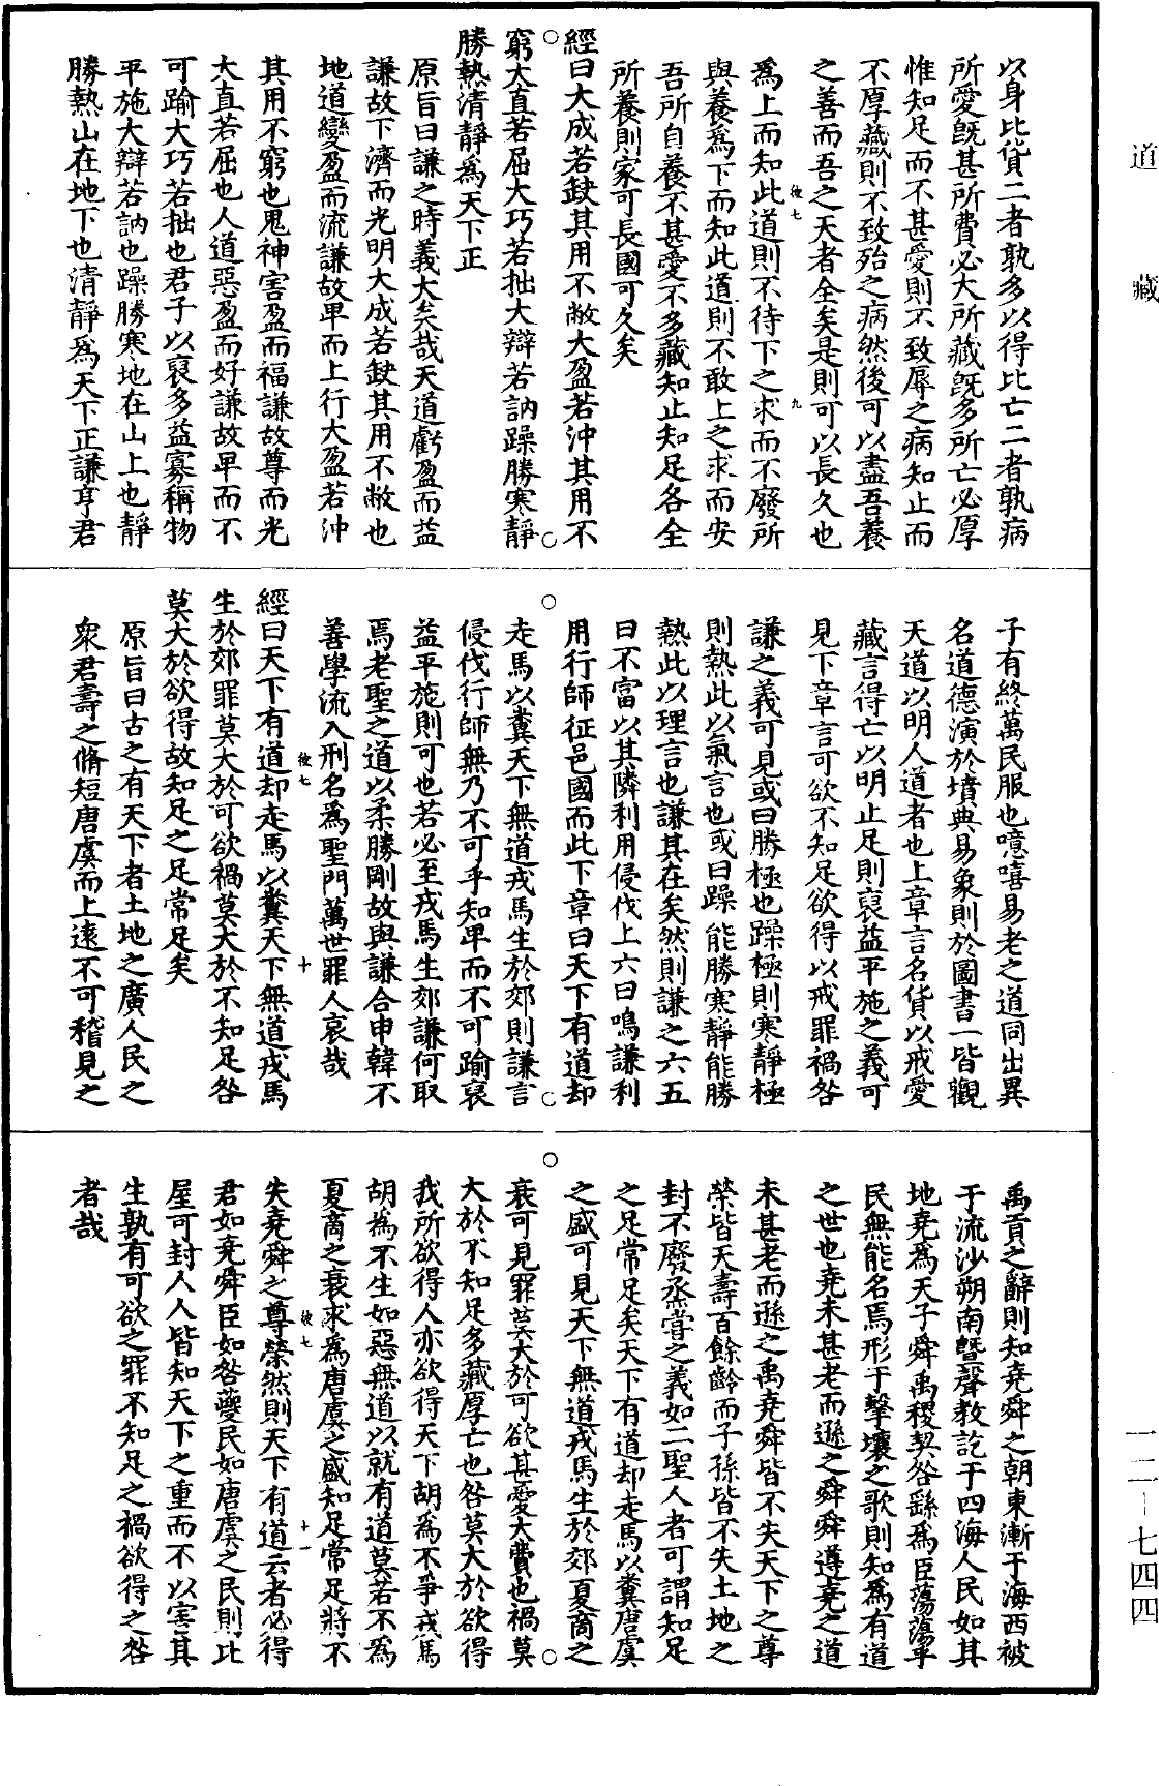 道藏
以身比貨二者孰多以得比亡二者孰病
所愛旣甚所費必大所藏旣多所亡必厚
惟知足而不甚愛則不致辱之病知止而
不厚藏則不致殆之病然後可以盡吾養
之善而吾之天者全矣是則可以長久也
後七 九
爲上而知此道則不待下之求而不廢所
與養爲下而知此道則不敢上之求而安
吾所自養不甚愛不多藏知止知足各全
所養則家可長國可久矣
經曰大成若缺其用不敝大盈若沖其用不
窮大直若屈大巧若拙大辯若訥躁勝寒靜
勝熱清靜爲天下正
原旨曰謙之時義大矣哉天道虧盈而益
謙故下濟而光明大成若缺其用不敝也
地道變盈而流謙故卑而上行大盈若沖
其用不窮也鬼神害盈而福謙故尊而光
大直若屈也人道惡盈而好謙故卑而不
可踰大巧若拙也君子以裒多益寡稱物
平施大辯若訥也躁勝寒地在山上也靜
勝熱山在地下也清靜爲天下正謙亨君
子有終萬民服也噫嘻易老之道同出異
名道德演於墳典易象則於圖書一皆觀
天道以明人道者也上章言名貨以戒愛
藏言得亡以明止足則裒益平施之義可
見下章言可欲不知足欲得以戒罪禍咎
謙之義可見或曰勝極也躁極則寒靜極
則熱此以氣言也或曰躁能勝寒靜能勝
熱此以理言也謙其在矣然則謙之六五
曰不富以其隣利用侵伐上六曰鳴謙利
用行師征邑國而此下章曰天下有道却
走馬以糞天下無道戎馬生於郊則謙言
侵伐行師無乃不可乎知卑而不可踰裒
益平施則可也若必至戎馬生郊謙何取
焉老聖之道以柔勝剛故與謙合申韓不
善學流入刑名爲聖門萬世罪人哀哉
後七 十
經曰天下有道却走馬以糞天下無道戎馬
生於郊罪莫大於可欲禍莫大於不知足咎
莫大於欲得故知足之足常足矣
原旨曰古之有天下者土地之廣人民之
衆君壽之脩短唐虞而上遠不可稽見之
禹貢之辭則知堯舜之朝東漸于海西被
于流沙朔南曁聲教訖于四海人民如其
地堯爲天子舜禹稷契咎繇爲臣蕩蕩乎
民無能名焉形于擊壤之歌則知爲有道
之世也堯未甚老而遜之舜舜遵堯之道
未甚老而遜之禹堯舜皆不失天下之尊
榮皆天壽百餘齡而子孫皆不失土地之
封不廢烝嘗之義如二聖人者可謂知足
之足常足矣天下有道却走馬以糞唐虞
之盛可見天下無道戎馬生於郊夏商之
衰可見罪莫大於可欲甚愛大費也禍莫
大於不知足多藏厚亡也咎莫大於欲得
我所欲得人亦欲得天下胡爲不爭戎馬
胡爲不生如惡無道以就有道莫若不爲
夏商之衰求爲唐虞之盛知足常足將不
後七 十一
失堯舜之尊榮然則天下有道云者必得
君如堯舜臣如咎夔民如唐虞之民則比
屋可封人人皆知天下之重而不以害其
生孰有可欲之罪不知足之禍欲得之咎
者哉
一二-七四四